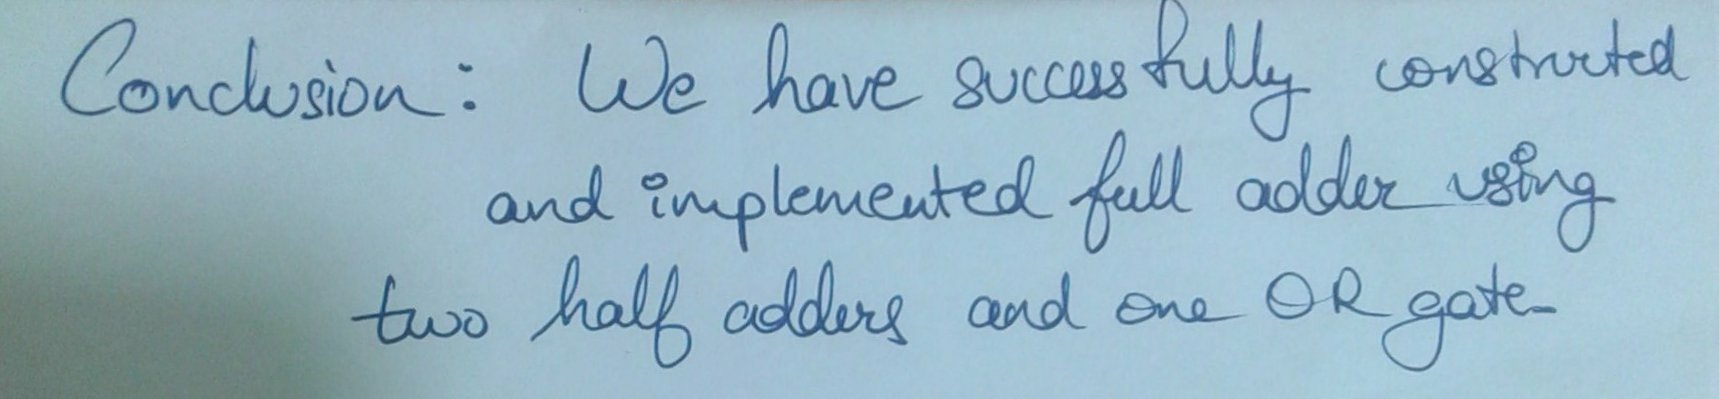 Conclusion: We have successfully constructed
and implemented full adder using
two half adders and one OR gate.